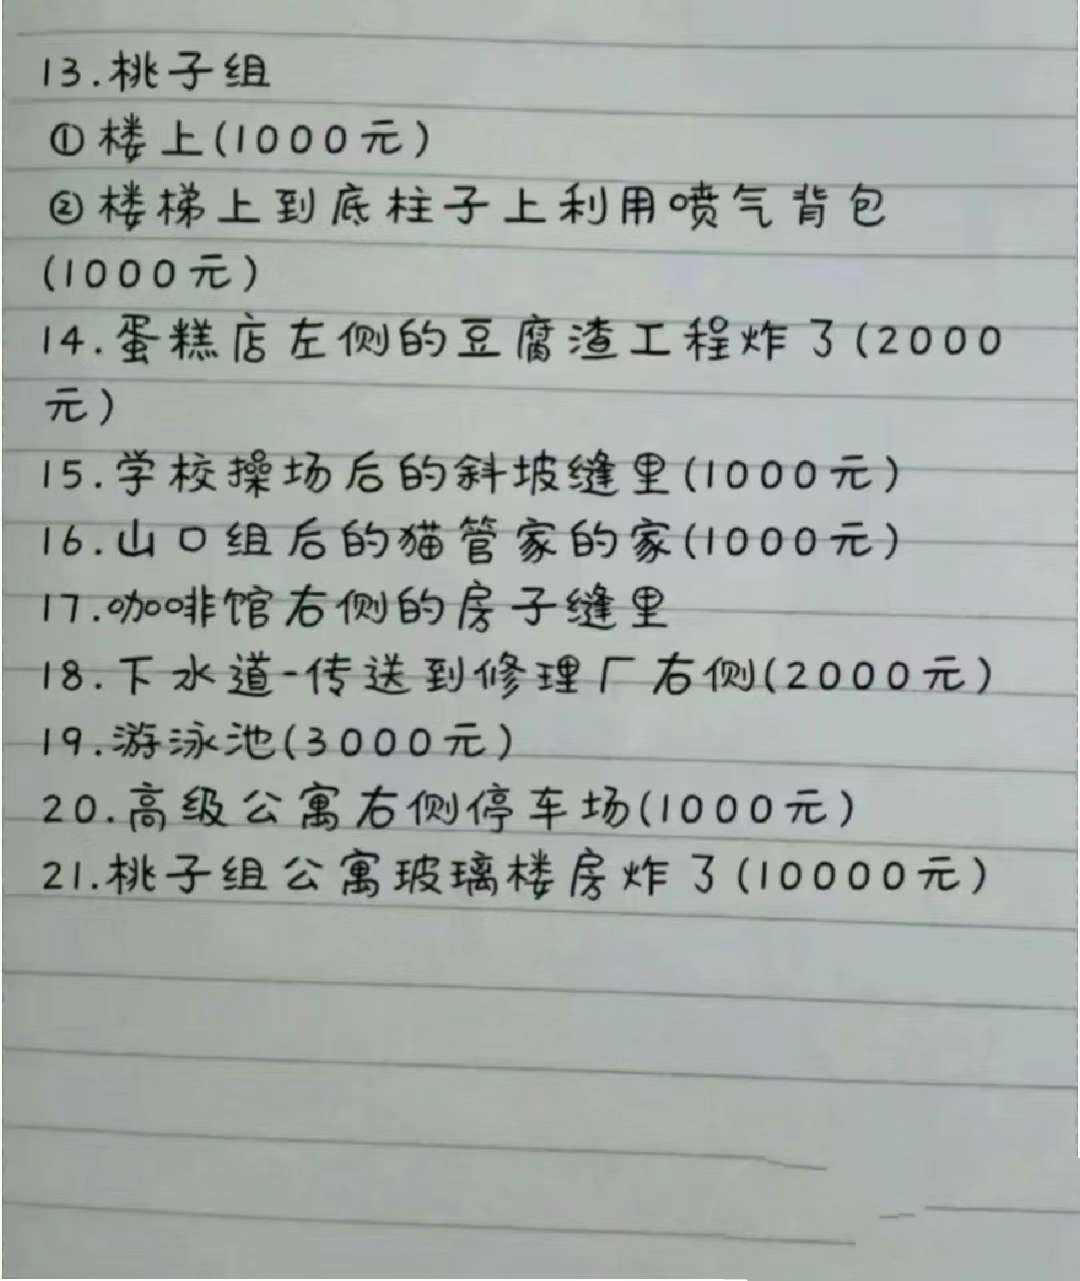 13.桃子组
①楼上(1000元)
②楼梯上到底柱子上利用喷气背包
(1000元)
14.蛋糕店左侧的豆腐渣工程炸了(2000
元)
15.学校操场后的斜坡缝里(1000元)
16.山口组后的猫管家的家(1000元)
17.咖啡馆右侧的房子缝里
18.下水道-传送到修理厂右侧(2000元)
19.游泳池(3000元)
20.高级公寓右侧停车场(1000元)
21.桃子组公寓玻璃楼房炸了(10000元)